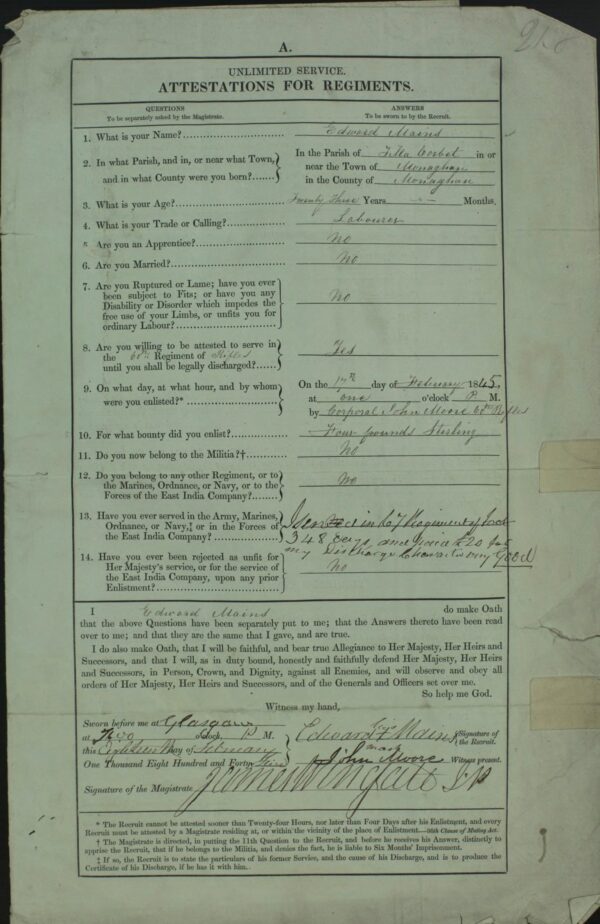 A.
UNLIMITED SERVICE.
ATTESTATIONS FOR REGIMENTS.
QUESTIONS
To be separately asked by the Magistrate.
ANSWERS
To be sworn to by the Recruit.
1. What is your Name? Edward Mains
2. In what Parish, and in, or near what Town, In the Parish of Corbet in or
near the Town of Monaghan
and in what County were you born? in the County of Monaghan
3. What is your Age? Twenty Three Years Months.
4. What is your Trade or Calling? Labourer
5 Are you an Apprentice? No
6. Are you Married? No
7. Are you Ruptured or Lame; have you ever
been subject to Fits; or have you any
Disability or Disorder which impedes the No
free use of your Limbs, or unfits you for
ordinary Labour?
8. Are you willing to be attested to serve in
the 60th Regiment of Rifles Yes
until you shall be legally discharged?
9. On what day, at what hour, and by whom On the 17th day of February 1845,
were you enlisted?* at one o'clock P M.
by Corporal John Moore 60th Rifles
10. For what bounty did you enlist? Four pounds Sterling
11. Do you now belong to the Militia?† No
12. Do you belong to any other Regiment, or to
the Marines, Ordnance, or Navy, or to the No
Forces of the East India Company?
13. Have you ever served in the Army, Marines,
Ordnance, or Navy,‡ or in the Forces of in 67 Regiment of
the East India Company? 348 and £20 for
my Discharge Character very Good
14. Have you ever been rejected as unfit for
Her Majesty's service, or for the service of No
the East India Company, upon any prior
Enlistment?
I Edward Mains do make Oath
that the above Questions have been separately put to me; that the Answers thereto have been read
over to me; and that they are the same that I gave, and are true.
I do also make Oath, that I will be faithful, and bear true Allegiance to Her Majesty, Her Heirs and
Successors, and that I will, as in duty bound, honestly and faithfully defend Her Majesty, Her Heirs
and Successors, in Person, Crown, and Dignity, against all Enemies, and will observe and obey all
orders of Her Majesty, Her Heirs and Successors, and of the Generals and Officers set over me.
So help me God.
Witness my hand,
Sworn before me at Glasgow
at Two o'Clock, P M. Edward his X mark Mains Signature of the Recruit.
this Eighteenth Day of February
One Thousand Eight Hundred and Forty five John Moore Witness present.
Signature of the Magistrate James Wingate J P
* The Recruit cannot be attested sooner than Twenty-four Hours, nor later than Four Days after his Enlistment, and every
Recruit must be attested by a Magistrate residing at, or within the vicinity of the place of Enlistment.—
† The Magistrate is directed, in putting the 11th Question to the Recruit, and before he receives his Answer, distinctly to
apprise the Recruit, that if he belongs to the Militia, and denies the fact, he is liable to Six Months' Imprisonment.
‡ If so, the Recruit is to state the particulars of his former Service, and the cause of his Discharge, and is to produce the
Certificate of his Discharge, if he has it with him.